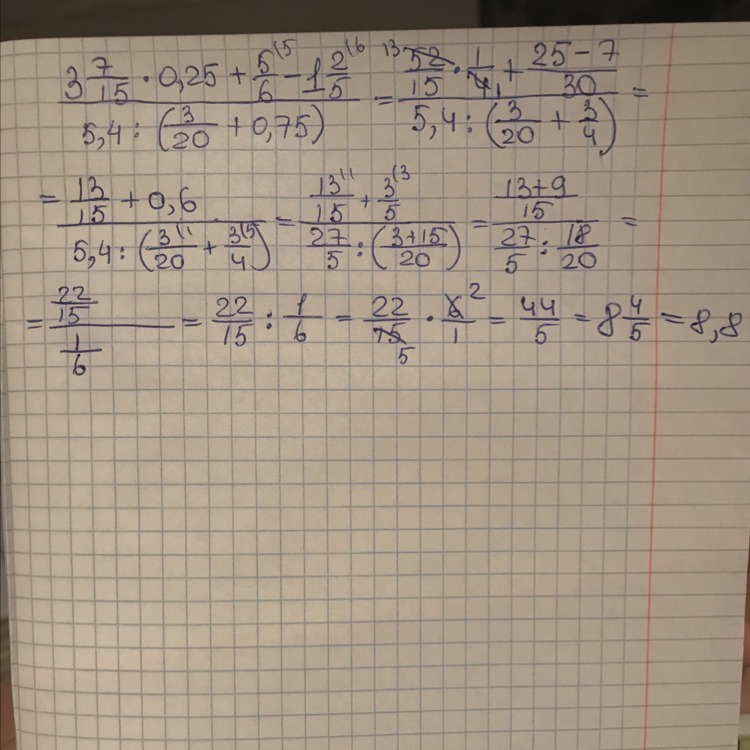 (3 7/15 · 0,25 + 5/6⁽⁵ − 1 2/5⁽⁶) / (5,4 : (3/20 + 0,75)) = (¹³52/15 · 1/4₁ + (25−7)/30) / (5,4 : (3/20 + 3/4)) =
= (13/15 + 0,6) / (5,4 : (3⁽¹/20 + 3⁽⁵/4)) = (13⁽¹/15 + 3⁽³/5) / (27/5 : ((3+15)/20)) = ((13+9)/15) / (27/5 : 18/20) =
= (22/15) / (1/6) = 22/15 : 1/6 = 22/15₅ · 6²/1 = 44/5 = 8 4/5 = 8,8